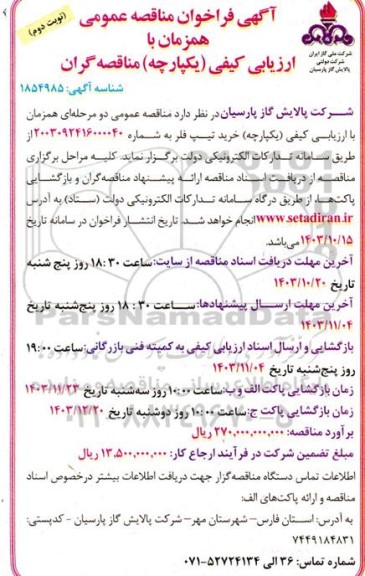 (نوبت دوم)
آگهی فراخوان مناقصه عمومی
همزمان با
ارزیابی کیفی (یکپارچه) مناقصه گران
شرکت ملی گاز ایران
شرکت دولتی
پالایش گاز پارسیان
شناسه آگهی: ۱۸۵۴۹۸۵
شرکت پالایش گاز پارسیان در نظر دارد مناقصه عمومی دو مرحله‌ای همزمان
با ارزیابی کیفی (یکپارچه) خرید تیپ فلر به شماره ۲۰۰۳۰۹۲۴۱۶۰۰۰۰۴۰ از
طریق سامانه تدارکات الکترونیکی دولت برگزار نماید. کلیه مراحل برگزاری
مناقصه از دریافت اسناد مناقصه تا ارائه پیشنهاد مناقصه‌گران و بازگشایی
پاکت‌ها، از طریق درگاه سامانه تدارکات الکترونیکی دولت (ستاد) به آدرس
www.setadiran.ir انجام خواهد شد. تاریخ انتشار فراخوان در سامانه تاریخ
۱۴۰۳/۱۰/۱۵ می‌باشد.
آخرین مهلت دریافت اسناد مناقصه از سایت: ساعت ۱۸:۳۰ روز پنج شنبه
تاریخ ۱۴۰۳/۱۰/۲۰
آخرین مهلت ارسال پیشنهادها: ساعت ۱۸:۳۰ روز پنج‌شنبه تاریخ
۱۴۰۳/۱۱/۰۴
بازگشایی و ارسال اسناد ارزیابی کیفی به کمیته فنی بازرگانی: ساعت ۱۹:۰۰
روز پنج‌شنبه تاریخ ۱۴۰۳/۱۱/۰۴
زمان بازگشایی پاکت الف و ب: ساعت ۱۰:۰۰ روز سه‌شنبه تاریخ ۱۴۰۳/۱۱/۲۳
زمان بازگشایی پاکت ج: ساعت ۱۰:۰۰ روز دوشنبه تاریخ ۱۴۰۳/۱۲/۲۰
برآورد مناقصه: ۲۷۰,۰۰۰,۰۰۰,۰۰۰ ریال
مبلغ تضمین شرکت در فرآیند ارجاع کار: ۱۳,۵۰۰,۰۰۰,۰۰۰ ریال
اطلاعات تماس دستگاه مناقصه‌گزار جهت دریافت اطلاعات بیشتر درخصوص اسناد
مناقصه و ارائه پاکت‌های الف:
به آدرس: استان فارس- شهرستان مهر- شرکت پالایش گاز پارسیان - کدپستی:
۷۴۴۹۱۸۴۸۳۱
شماره تماس: ۳۶ الی ۵۲۷۲۴۱۳۴-۰۷۱
ParsNamadData